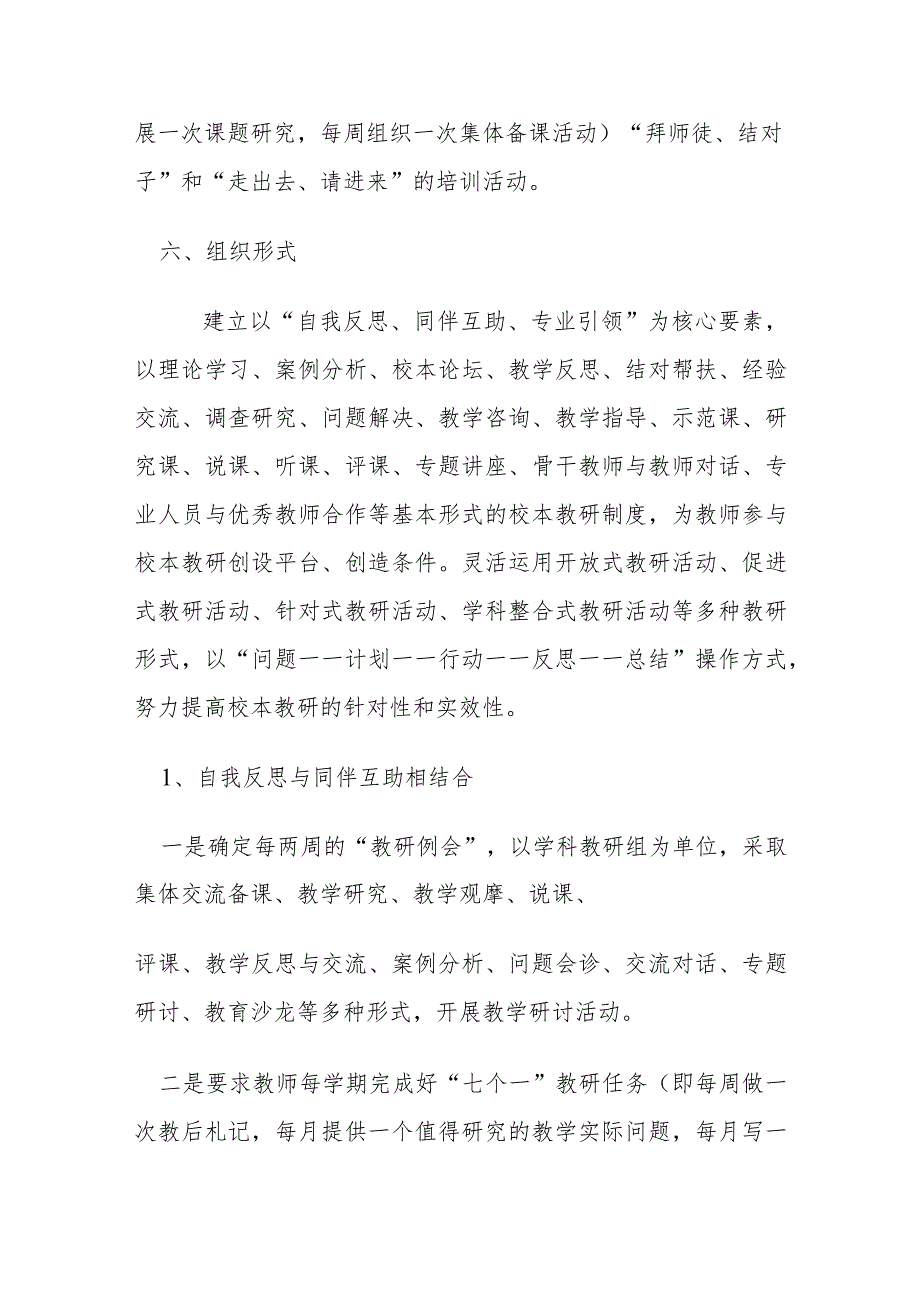 展一次课题研究，每周组织一次集体备课活动）“拜师徒、结对
子”和“走出去、请进来”的培训活动。
六、组织形式
建立以“自我反思、同伴互助、专业引领”为核心要素，
以理论学习、案例分析、校本论坛、教学反思、结对帮扶、经验
交流、调查研究、问题解决、教学咨询、教学指导、示范课、研
究课、说课、听课、评课、专题讲座、骨干教师与教师对话、专
业人员与优秀教师合作等基本形式的校本教研制度，为教师参与
校本教研创设平台、创造条件。灵活运用开放式教研活动、促进
式教研活动、针对式教研活动、学科整合式教研活动等多种教研
形式，以“问题一一计划一一行动一一反思一一总结”操作方式，
努力提高校本教研的针对性和实效性。
1、自我反思与同伴互助相结合
一是确定每两周的“教研例会”，以学科教研组为单位，采取
集体交流备课、教学研究、教学观摩、说课、
评课、教学反思与交流、案例分析、问题会诊、交流对话、专题
研讨、教育沙龙等多种形式，开展教学研讨活动。
二是要求教师每学期完成好“七个一”教研任务（即每周做一
次教后札记，每月提供一个值得研究的教学实际问题，每月写一